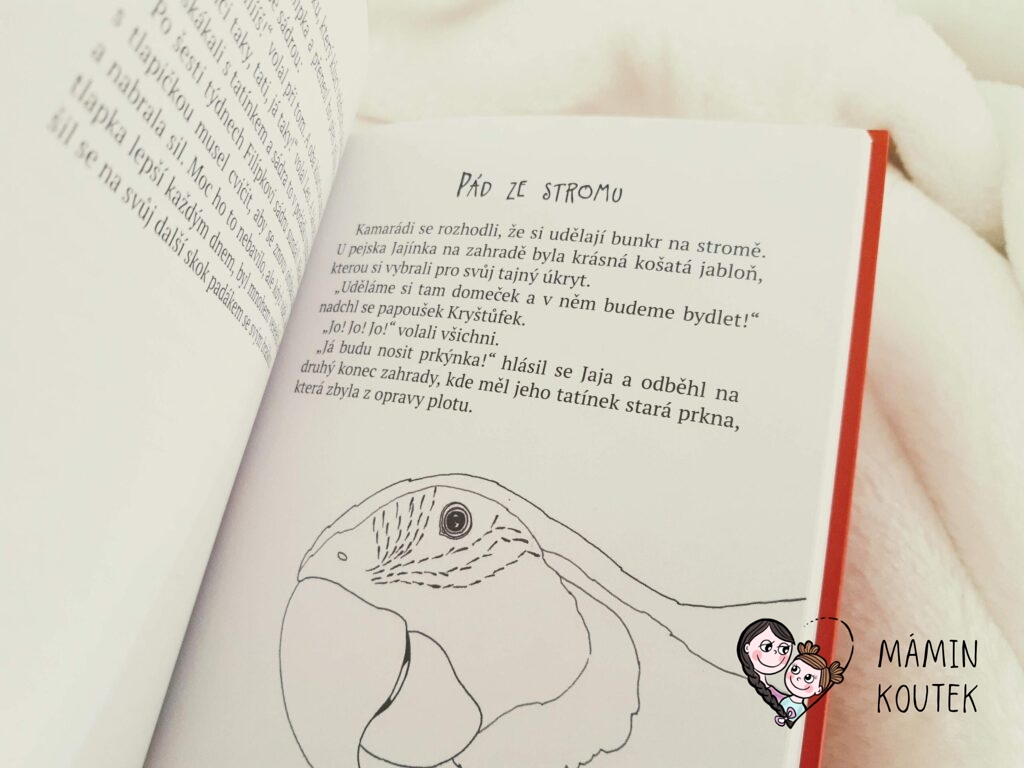 skákali s tatínkem a sádra to v pořádku
Po šesti týdnech Filípkovi sádru sundali
s tlapičkou musel cvičit, aby se
a nabrala sil. Moc ho to nebavilo, ale
tlapka lepší každým dnem, byl mnohem
šil se na svůj další skok padákem se svým
PÁD ZE STROMU
Kamarádi se rozhodli, že si udělají bunkr na stromě.
U pejska Jajínka na zahradě byla krásná košatá jabloň,
kterou si vybrali pro svůj tajný úkryt.
„Uděláme si tam domeček a v něm budeme bydlet!“
nadchl se papoušek Kryštůfek.
„Jo! Jo! Jo!“ volali všichni.
„Já budu nosit prkýnka!“ hlásil se Jaja a odběhl na
druhý konec zahrady, kde měl jeho tatínek stará prkna,
která zbyla z opravy plotu.
MÁMIN
KOUTEK